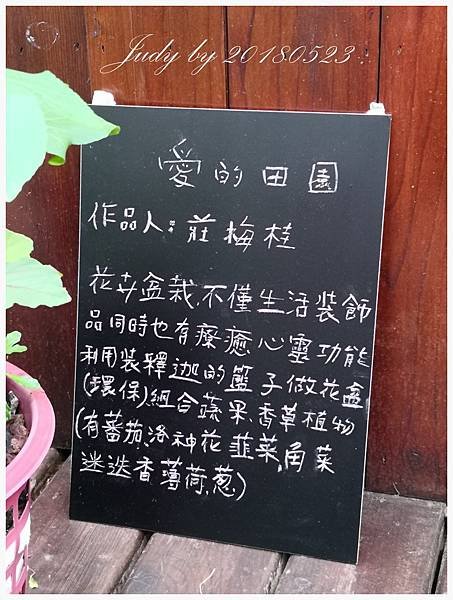 Judy by 20180523
愛的田園
作品人:莊梅桂
花卉盆栽,不僅生活裝飾
品同時也有療癒心靈功能
利用裝釋迦的籃子做花盒
(環保)組合蔬果、香草植物
(有蕃茄、洛神花韮菜,角菜
迷迭香薄荷,葱)